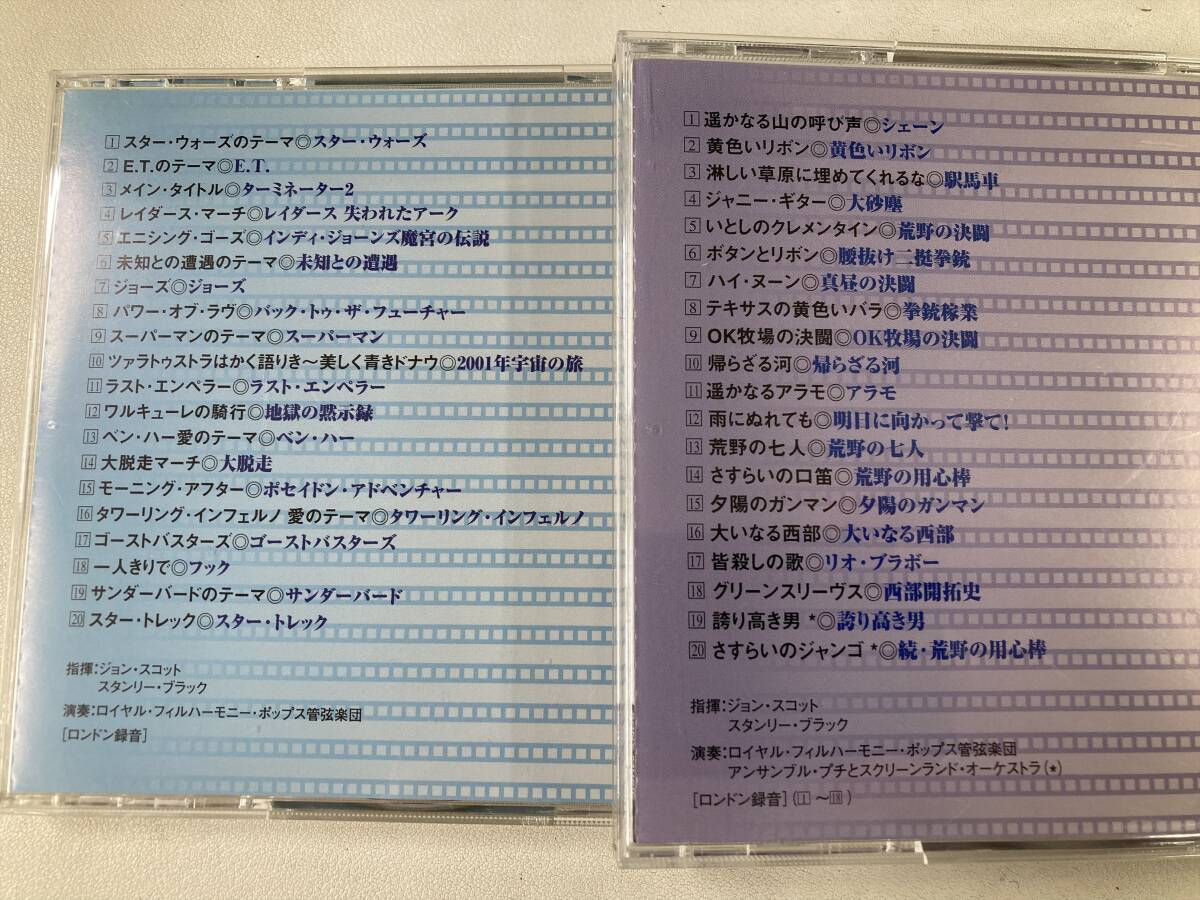 1 スター・ウォーズのテーマ◎スター・ウォーズ
2 E.T.のテーマ◎E.T.
3 メイン・タイトル◎ターミネーター2
4 レイダース・マーチ◎レイダース 失われたアーク
5 エニシング・ゴーズ◎インディ・ジョーンズ魔宮の伝説
6 未知との遭遇のテーマ◎未知との遭遇
7 ジョーズ◎ジョーズ
8 パワー・オブ・ラヴ◎バック・トゥ・ザ・フューチャー
9 スーパーマンのテーマ◎スーパーマン
10 ツァラトゥストラはかく語りき～美しく青きドナウ◎2001年宇宙の旅
11 ラスト・エンペラー◎ラスト・エンペラー
12 ワルキューレの騎行◎地獄の黙示録
13 ベン・ハー愛のテーマ◎ベン・ハー
14 大脱走マーチ◎大脱走
15 モーニング・アフター◎ポセイドン・アドベンチャー
16 タワーリング・インフェルノ 愛のテーマ◎タワーリング・インフェルノ
17 ゴーストバスターズ◎ゴーストバスターズ
18 一人きりで◎フック
19 サンダーバードのテーマ◎サンダーバード
20 スター・トレック◎スター・トレック
指揮:ジョン・スコット
スタンリー・ブラック
演奏:ロイヤル・フィルハーモニー・ポップス管弦楽団
[ロンドン録音]
1 遥かなる山の呼び声◎シェーン
2 黄色いリボン◎黄色いリボン
3 淋しい草原に埋めてくれるな◎駅馬車
4 ジャニー・ギター◎大砂塵
5 いとしのクレメンタイン◎荒野の決闘
6 ボタンとリボン◎腰抜け二挺拳銃
7 ハイ・ヌーン◎真昼の決闘
8 テキサスの黄色いバラ◎拳銃稼業
9 OK牧場の決闘◎OK牧場の決闘
10 帰らざる河◎帰らざる河
11 遥かなるアラモ◎アラモ
12 雨にぬれても◎明日に向かって撃て!
13 荒野の七人◎荒野の七人
14 さすらいの口笛◎荒野の用心棒
15 夕陽のガンマン◎夕陽のガンマン
16 大いなる西部◎大いなる西部
17 皆殺しの歌◎リオ・ブラボー
18 グリーンスリーヴス◎西部開拓史
19 誇り高き男 *◎誇り高き男
20 さすらいのジャンゴ *◎続・荒野の用心棒
指揮:ジョン・スコット
スタンリー・ブラック
演奏:ロイヤル・フィルハーモニー・ポップス管弦楽団
アンサンブル・プチとスクリーンランド・オーケストラ(*)
[ロンドン録音](1～18)